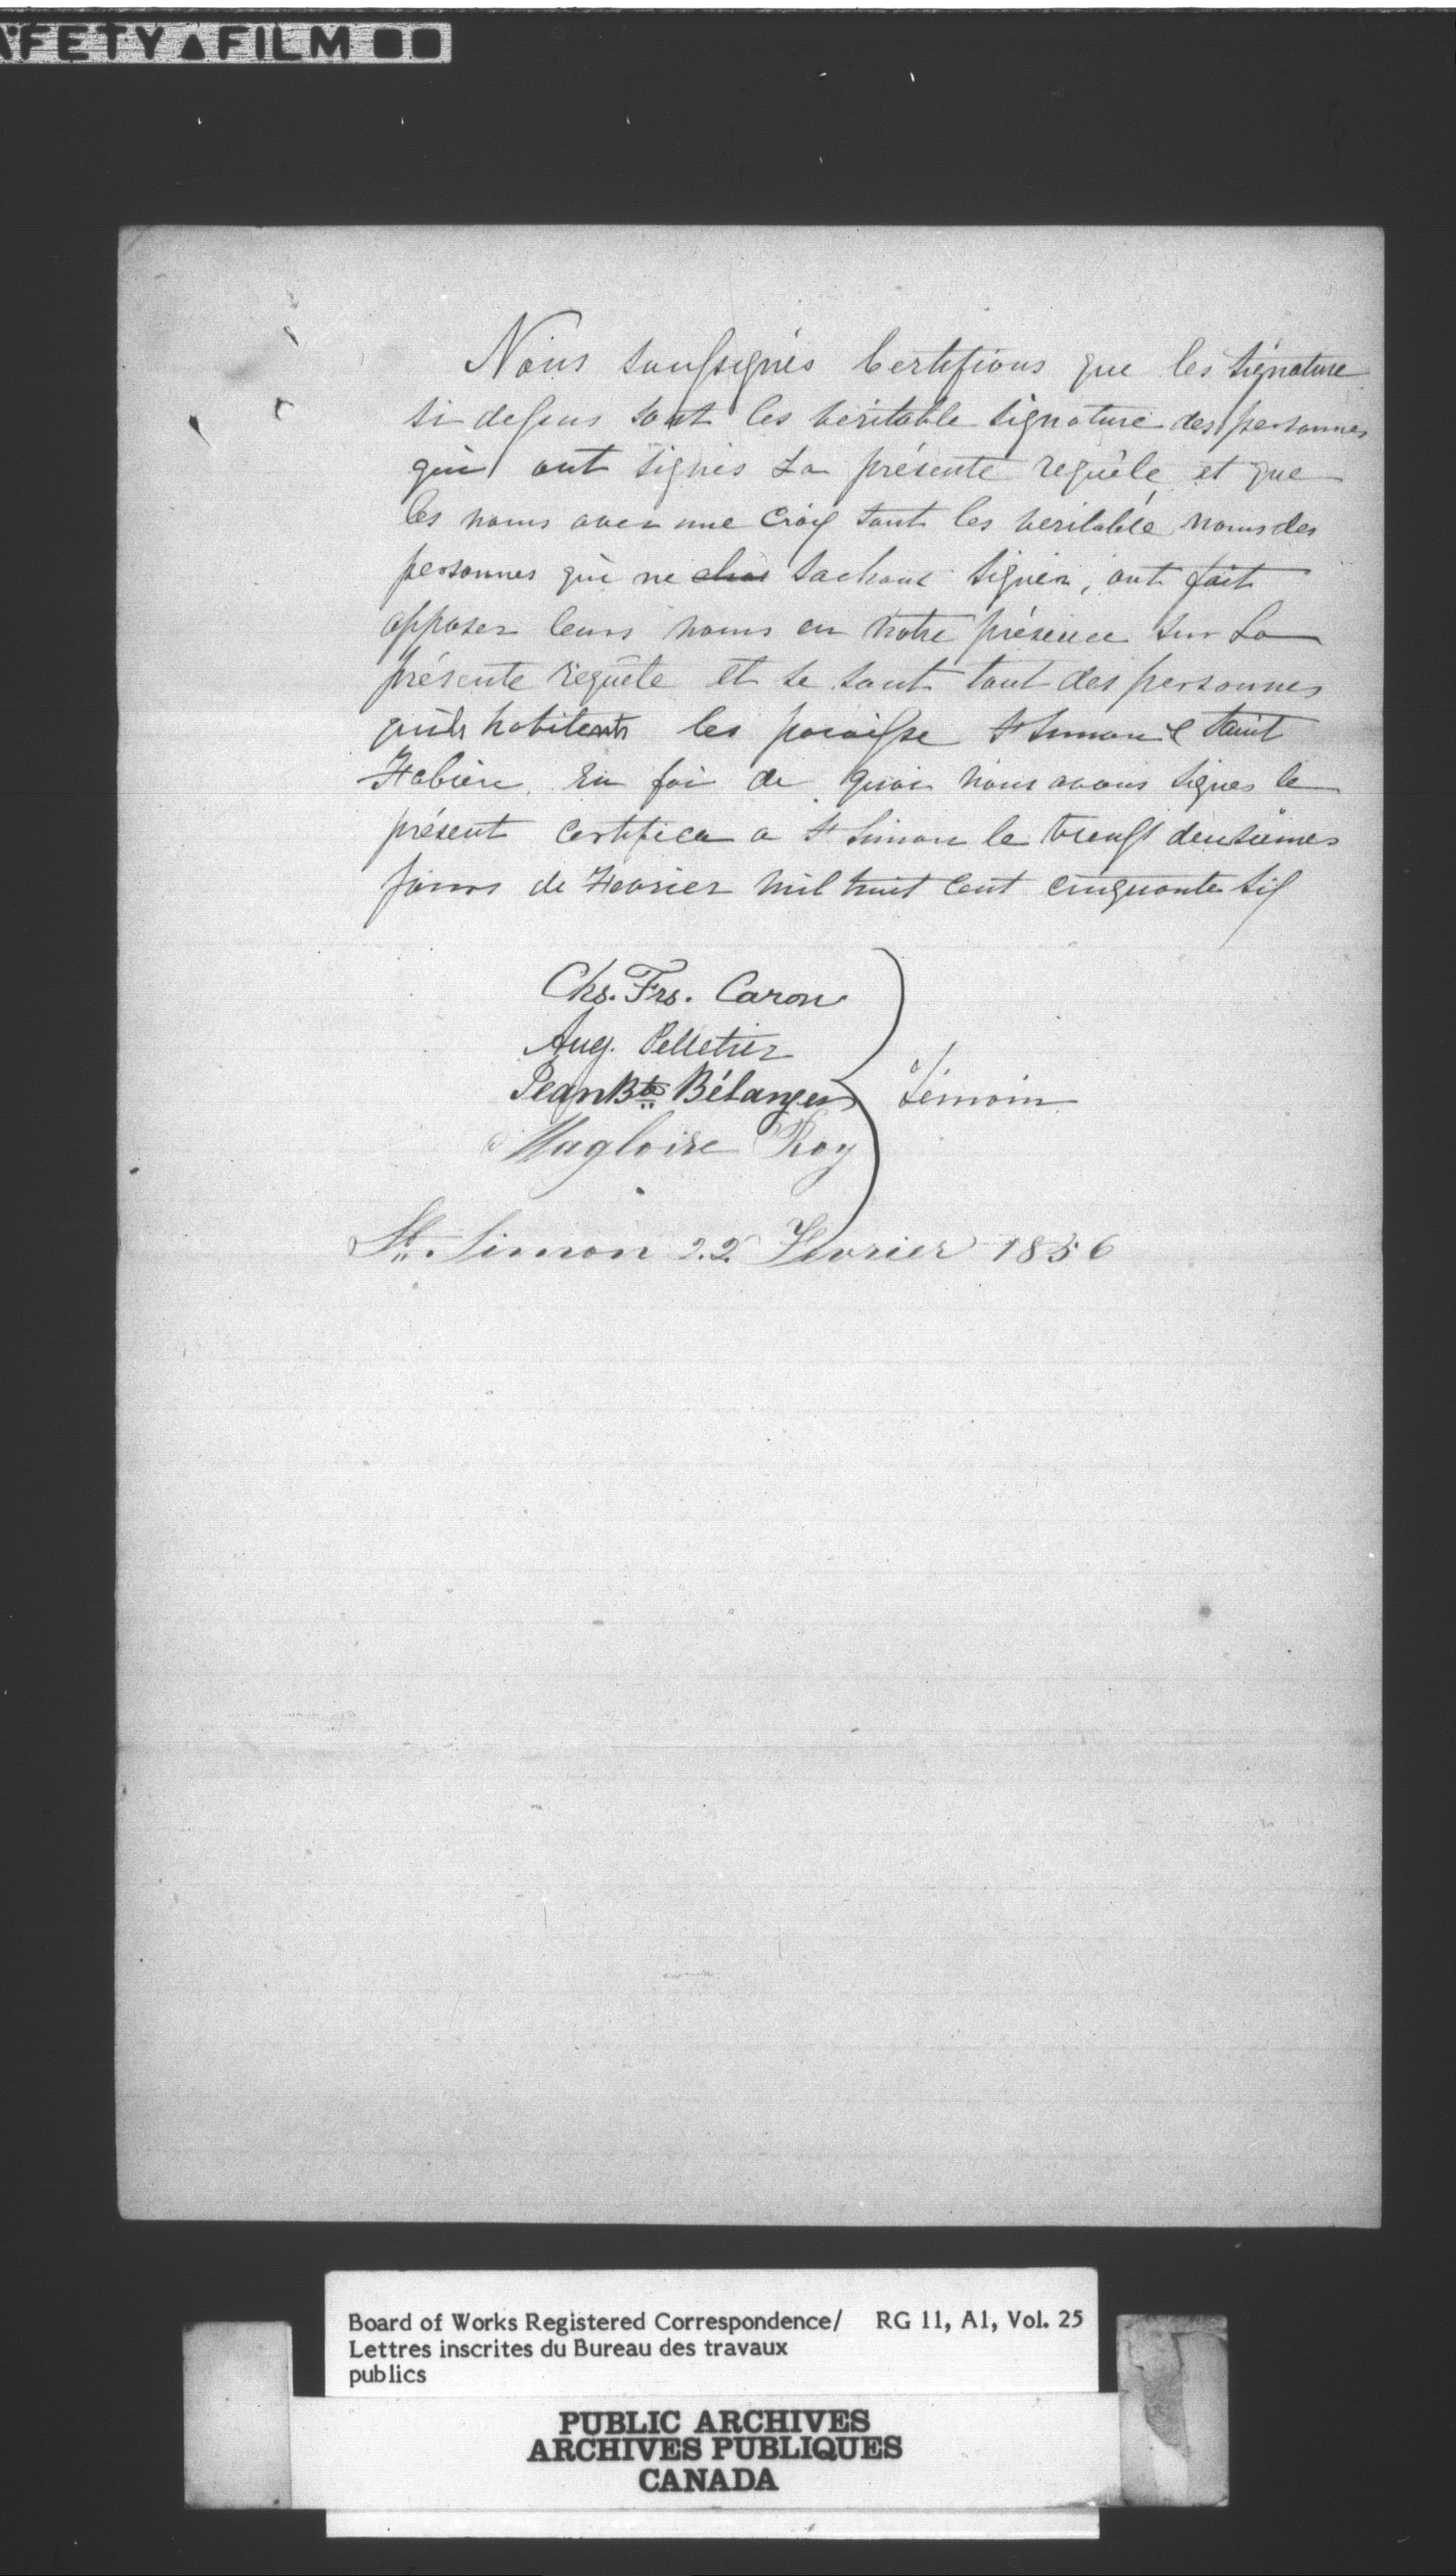 AFETY▲FILM
Nous soussignés Certifions que les signature
si dessus sont les véritable signature des personnes
qui ont signés La présente requête et que
les noms avec une Croix sont les veritable noms des
personnes qui ne sachant signer, ont fait
apposer leurs noms en notre présence sur La
présente requête et se sont tout des personnes
quils habitents les paroisse St Simon & Saint
Fabien. En foi de quoi nous avons signés le
présent certifica a St Simon le vingt deusiemes
jours de Fevrier mil huit Cent cinquante six
Chs. Frs. Caron
Aug. Pelletier
Jean Bte Bélanger
Témoin
Magloire Roy
St. Simon 22 Fevrier 1856
Board of Works Registered Correspondence/ RG 11, A1, Vol. 25
Lettres inscrites du Bureau des travaux
publics
PUBLIC ARCHIVES
ARCHIVES PUBLIQUES
CANADA